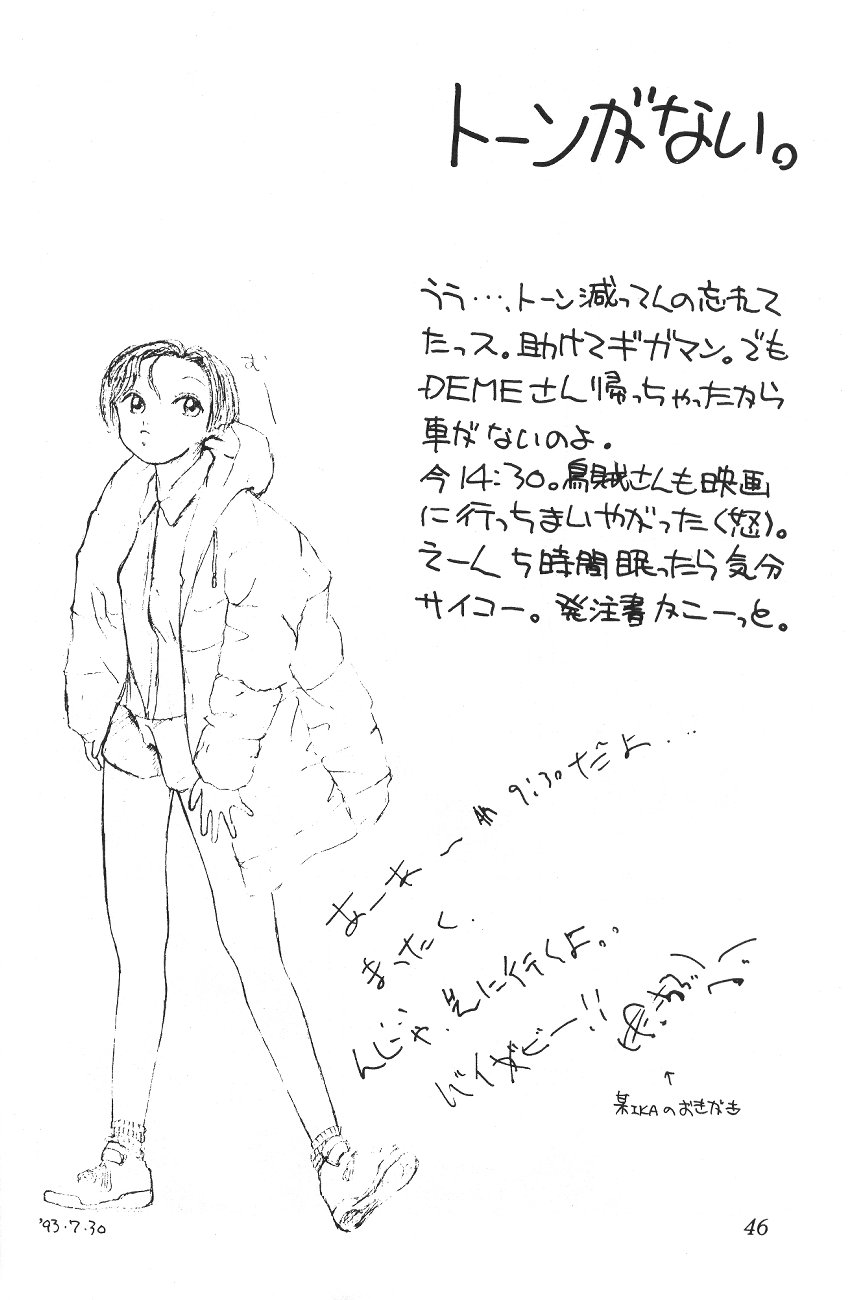 トーンがない。
うう…、トーン減ってんの忘れて
たっス。助けてギガマン。でも
DEMEさん帰っちゃったから
車がないのよ。
今14:30。烏賊さんも映画
に行っちまいやがった(怒)。
えーん ち時間眠ったら気分
サイコー。発注書カこーっと。
む
あーあ〜 9:30だよ...
まったく.
んじゃ、見に行くよ..
バイダビー!!
↑
某IKAのおきがき
'93・7・30
46